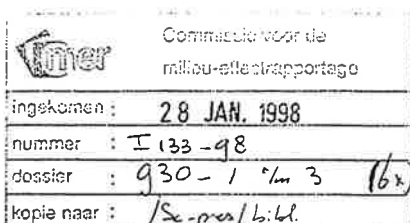 mer
Commissie voor de
milieu-effectrapportage
ingekomen : 28 JAN. 1998
nummer : I 133-98
dossier : 930-1 t/m 3 (6x)
kopie naar : /bibl.